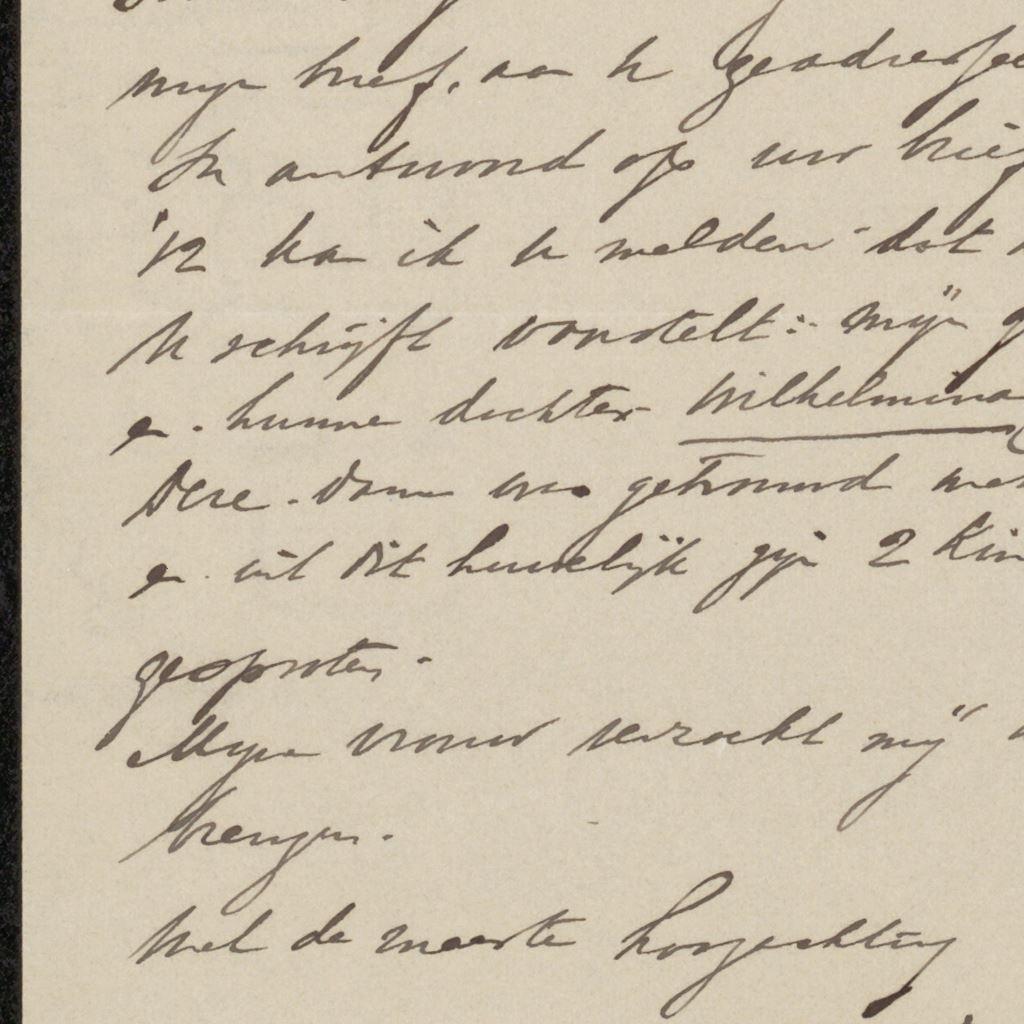 mijn brief, aan U geadresse
In antwoord op uw brief
'12 kan ik U melden dat
U schrijft voorstelt: mijn
en hunne dochter Wilhelmina
Deze dame was getrouwd met
en uit dit huwelijk zijn 2 Kin
gesproten.
Mijn vrouw verzoekt mij
brengen.
Met de meeste hoogachting